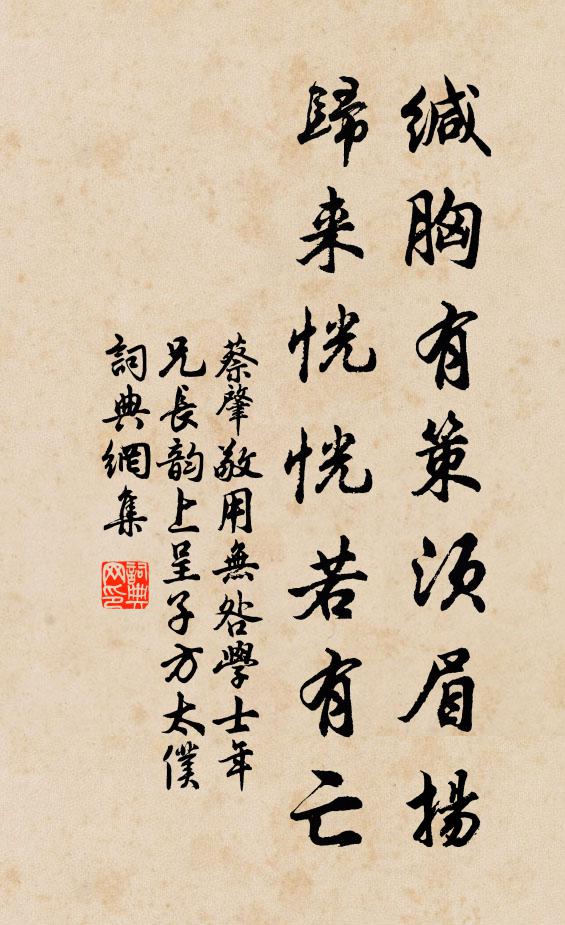 缄胸有策须眉揚
歸来恍恍若有亡
蔡肇敬用無咎學士年
兄長韵上呈子方太僕
詞典網集
詞典网印